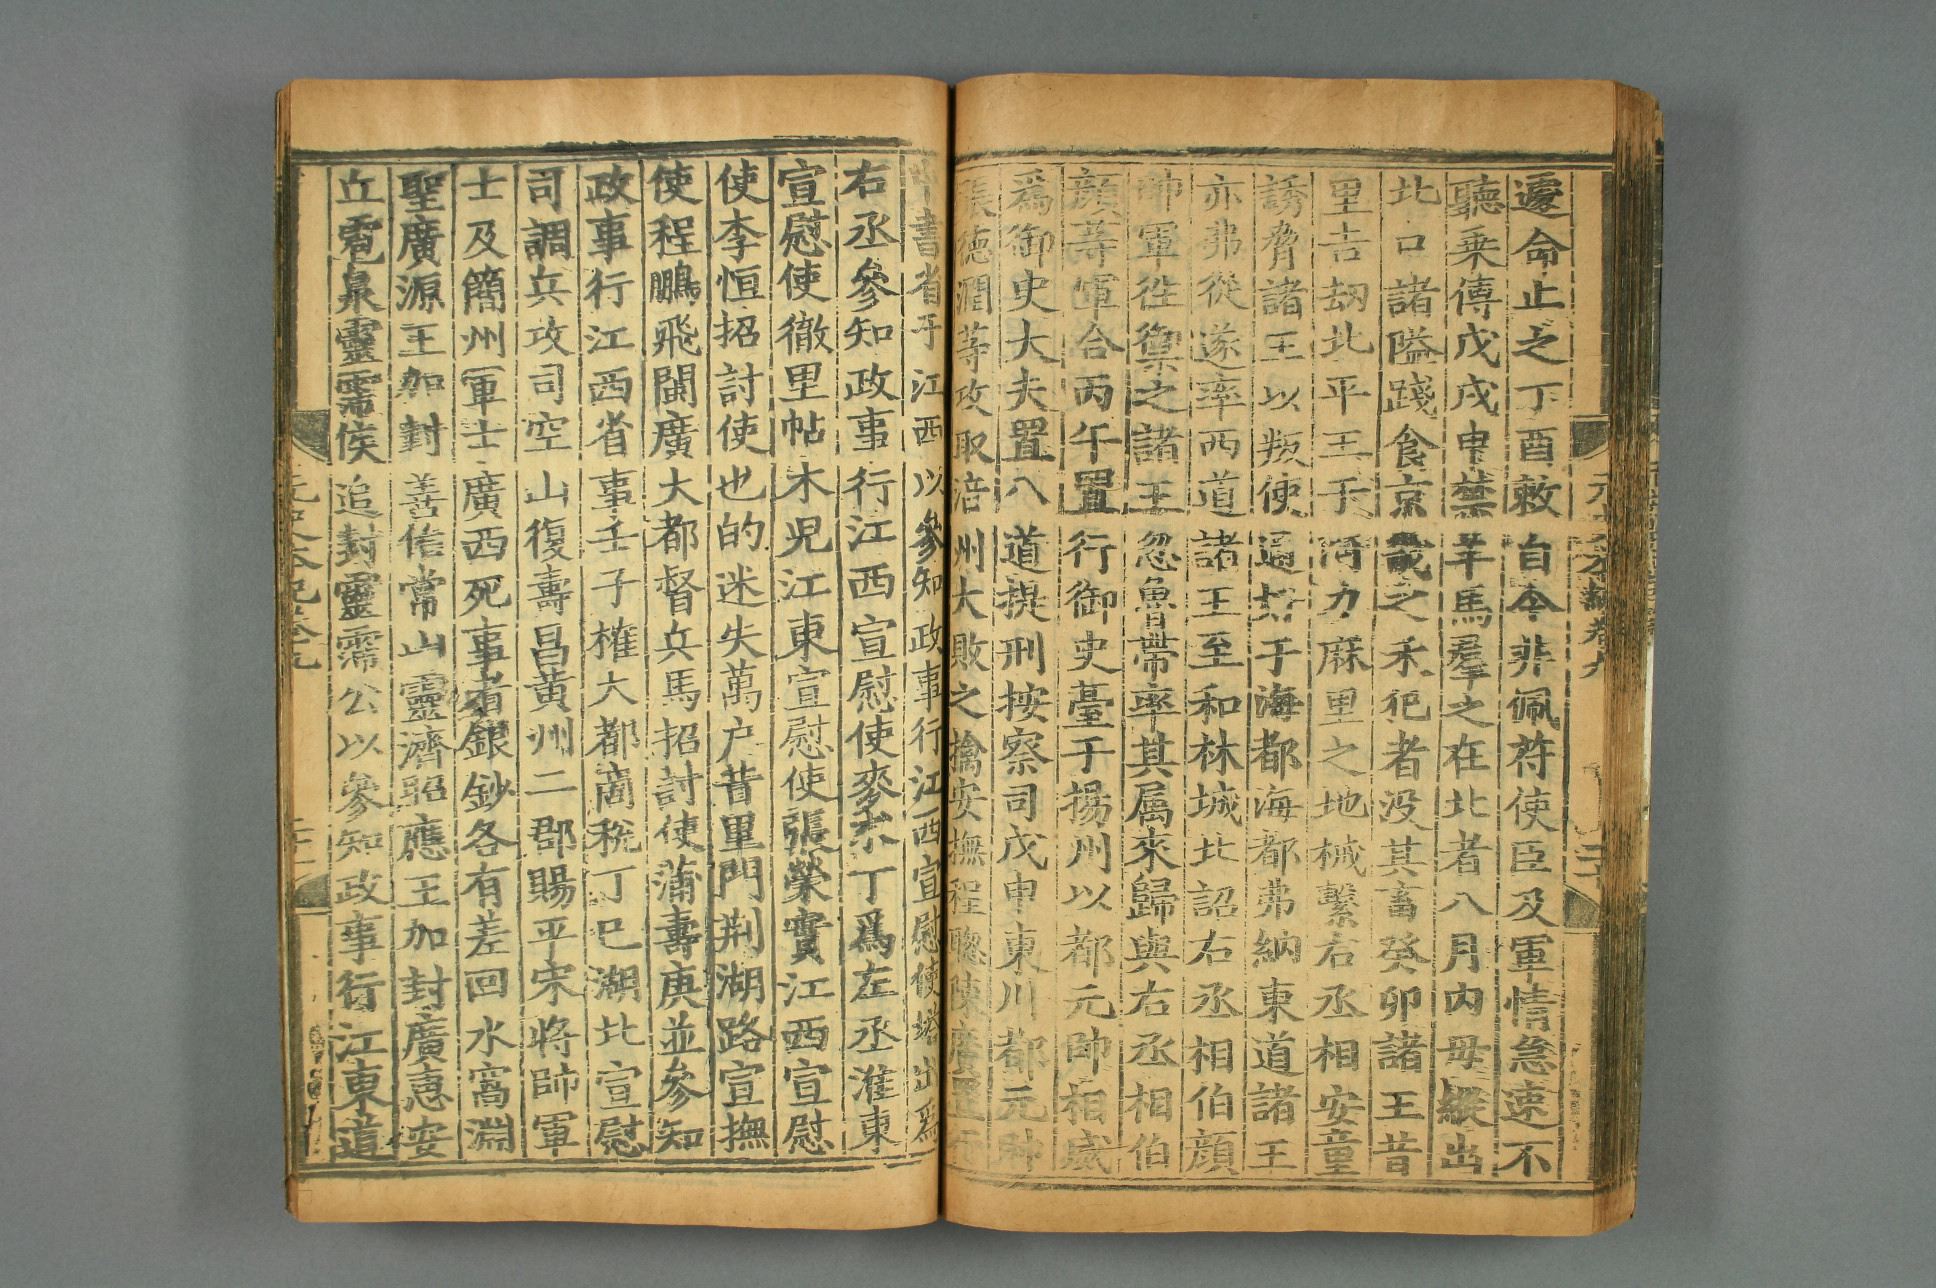 遽命止之丁酉敕自今非佩符使臣及軍情急速不
聽乗傳戊戌申禁羊馬羣之在北者八月内毋縱出
北口諸隘踐食京畿之禾犯者没其畜癸卯諸王昔
里吉劫北平王于河力麻里之地械繫右丞相安童
誘脅諸王以叛使通好于海都海都弗納東道諸王
亦弗從遂率西道諸王至和林城北詔右丞相伯顔
帥軍徃禦之諸王忽魯帶率其属來歸與右丞相伯
顔等軍合丙午置行御史臺于揚州以都元帥相威
爲御史大夫置八道提刑按察司戊申東川都元帥
張德潤等攻取涪州大敗之擒安撫程聰陳廣置行
中書省于江西以參知政事行江西宣慰使塔出爲
右丞參知政事行江西宣慰使麥术丁爲左丞淮東
宣慰使徹里帖木兒江東宣慰使張榮實江西宣慰
使李恒招討使也的迷失萬户昔里門荆湖路宣撫
使程鵬飛閩廣大都督兵馬招討使蒲壽庚並參知
政事行江西省事壬子榷大都商稅丁巳湖北宣慰
司調兵攻司空山復壽昌黄州二郡賜平宋將帥軍
士及簡州軍士廣西死事者銀鈔各有差回水窩淵
聖廣源王加封善佑常山靈濟昭應王加封廣惠安
丘雹泉靈霈侯追封靈霈公以參知政事行江東道
元史本紀卷九